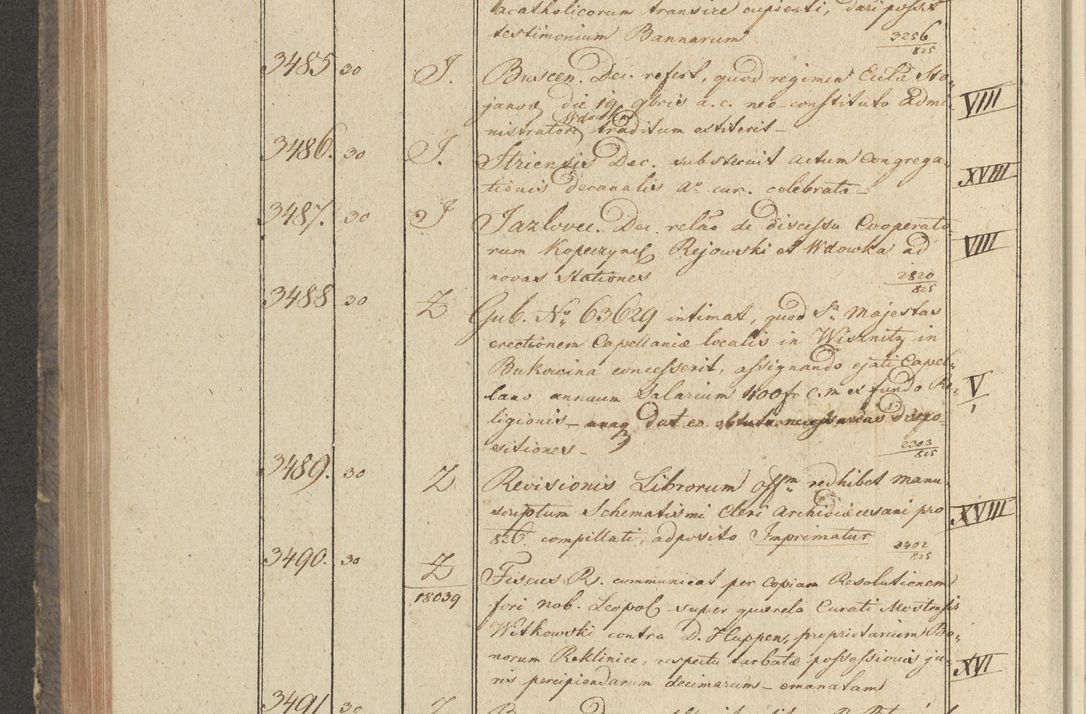 acatholicorum transire cupienti, dari possit
testimonium Bannarum 3256/825
3485 30 J. Buscen. Dec. refert, quod regimen Eccla Sto-
janow die 19 9bris a. c. neo-constituto admi- VIII
Wdowka
nistratori traditum extiterit_
3486. 30 J. Striensis Dec. substernit actum Congrega-
tionis decanalis Ao cur. celebrata_ XVIII
3487. 30 J Jazlovec. Dec. relao de discessu Cooperato-
rum Kopeczynce Rejowski et Wdowka ad VIII
novas stationes 2820/825
3488 30 Z Gub. No 63629 intimat, quod Sa Majestas
erectionem Capellaniae localis in Wisznitz in
Bukowina concesserit, assignando ejati Capel-
lano annuum Salarium 400 fr C. m ex fundo Re- V
ligionis_ dat eo dispo-
sitiones_ 2303/825
3489. 30 Z Revisionis Librorum offm redhibet manu
scriptum Schematismi Cleri Archidioecesani pro XVIII
826. compillati, adposito Imprimatur 2402/825
3490. 30 Z Fiscus R. communicat per Copiam Resolutionem
18039 fori nob. Leopol super querela Curati Mostensis
Witkowski contra D. Huppen, proprietarium Bo-
norum Reklinice, respectu turbatae possessionis ju-
ris percipiendarum decimarum_ emanatam XVI
3491 30 Z